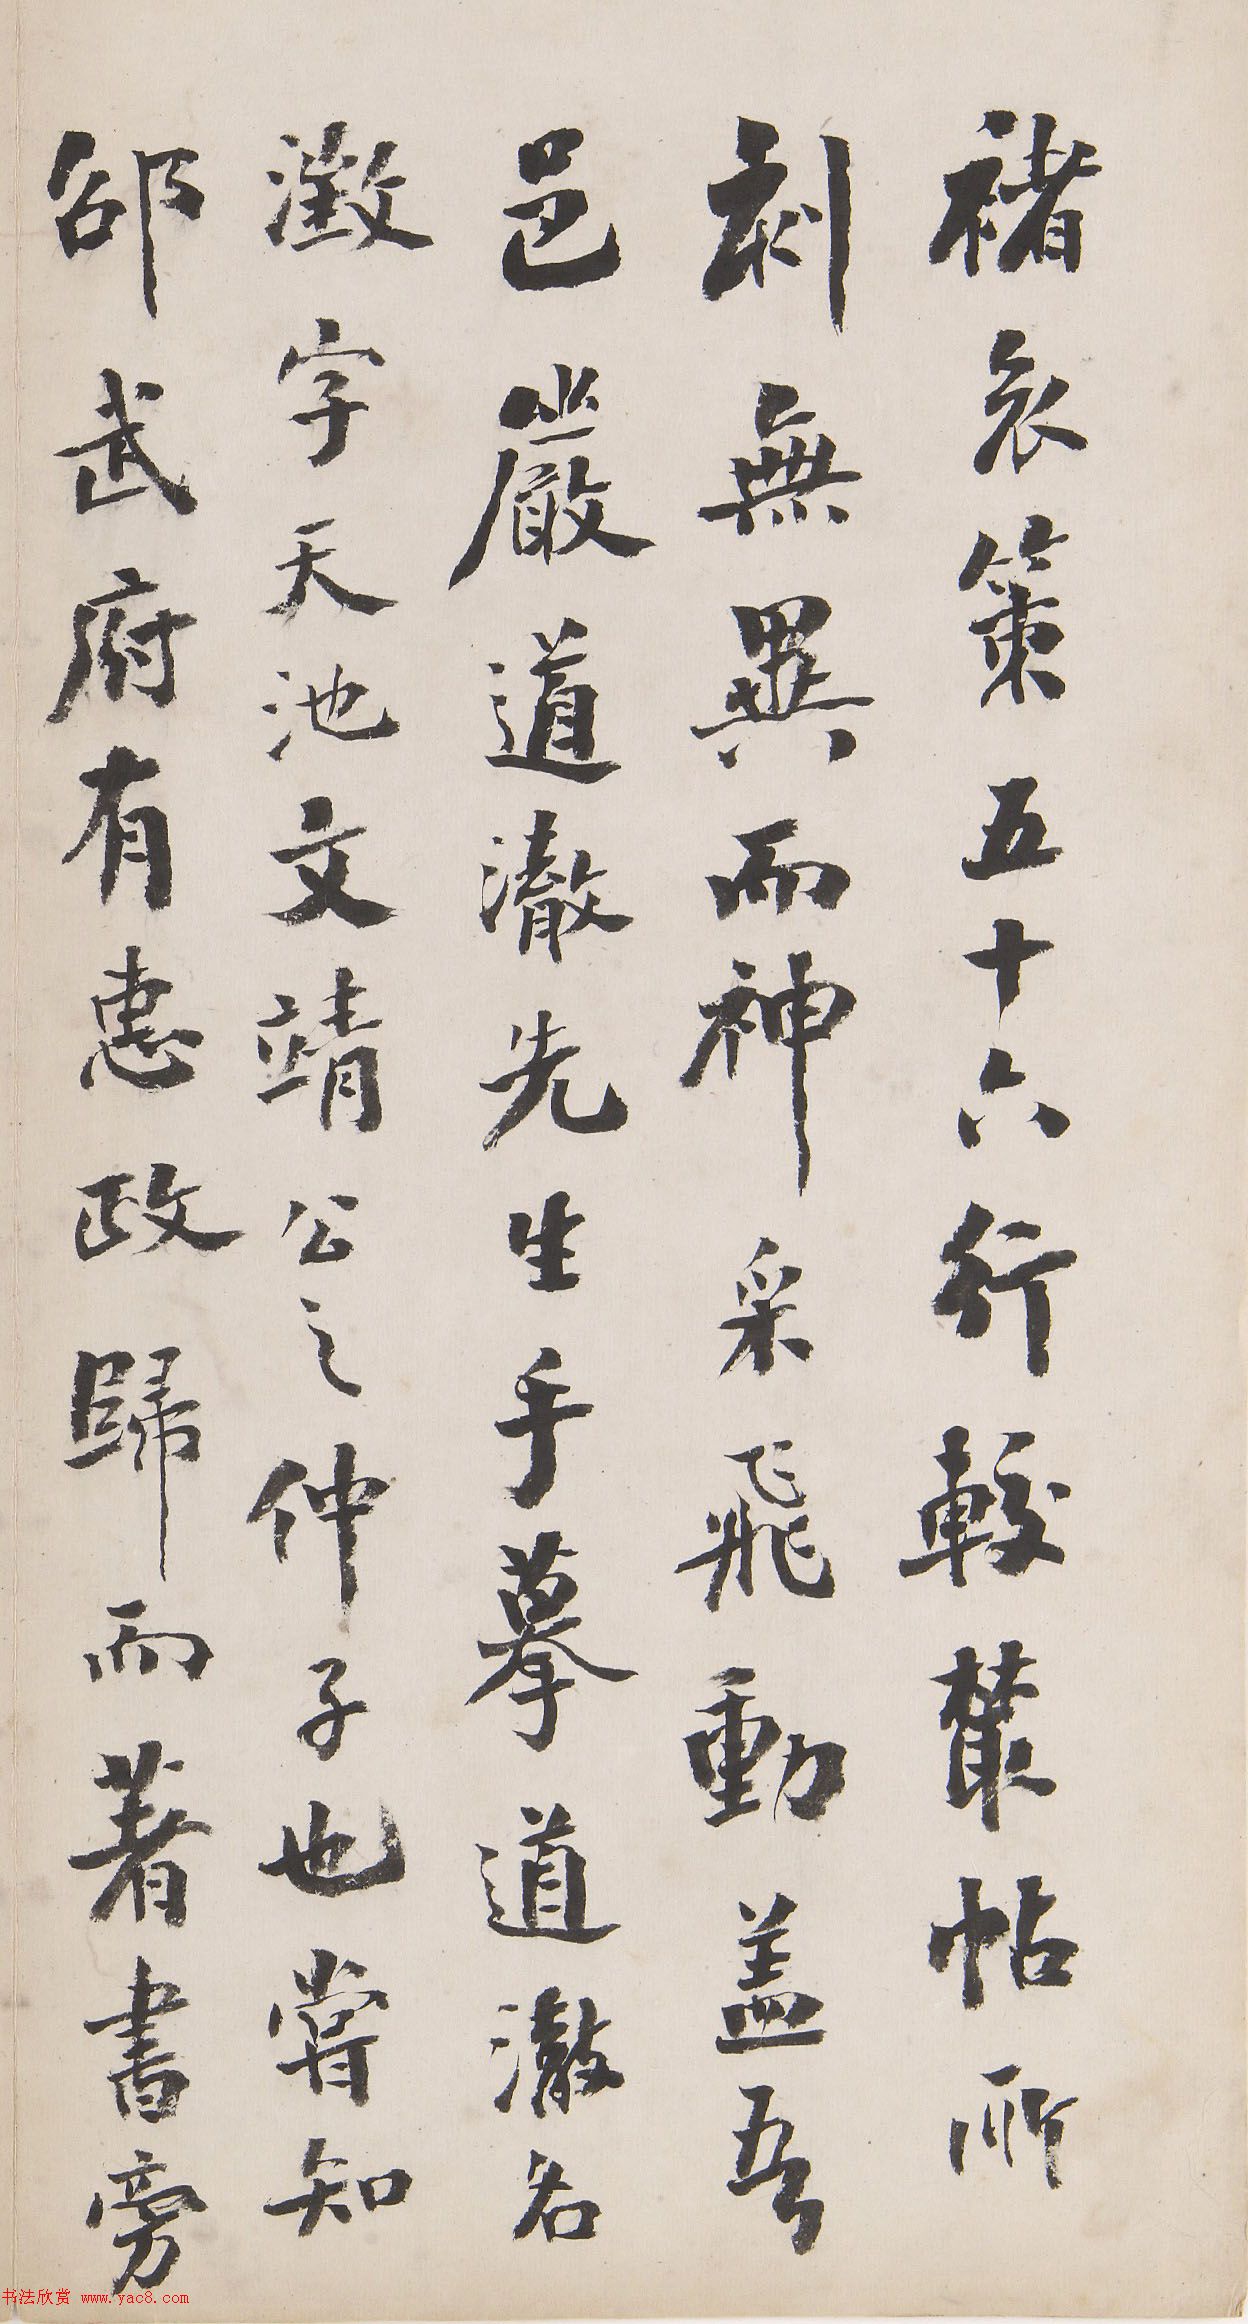 褚哀策五十六行較叢帖所
刻無異而神采飛動蓋吾
邑嚴道澈先生手摹道澈名
澂字天池文靖公之仲子也嘗知
邵武府有惠政歸而著書旁
书法欣赏 www.yac8.com